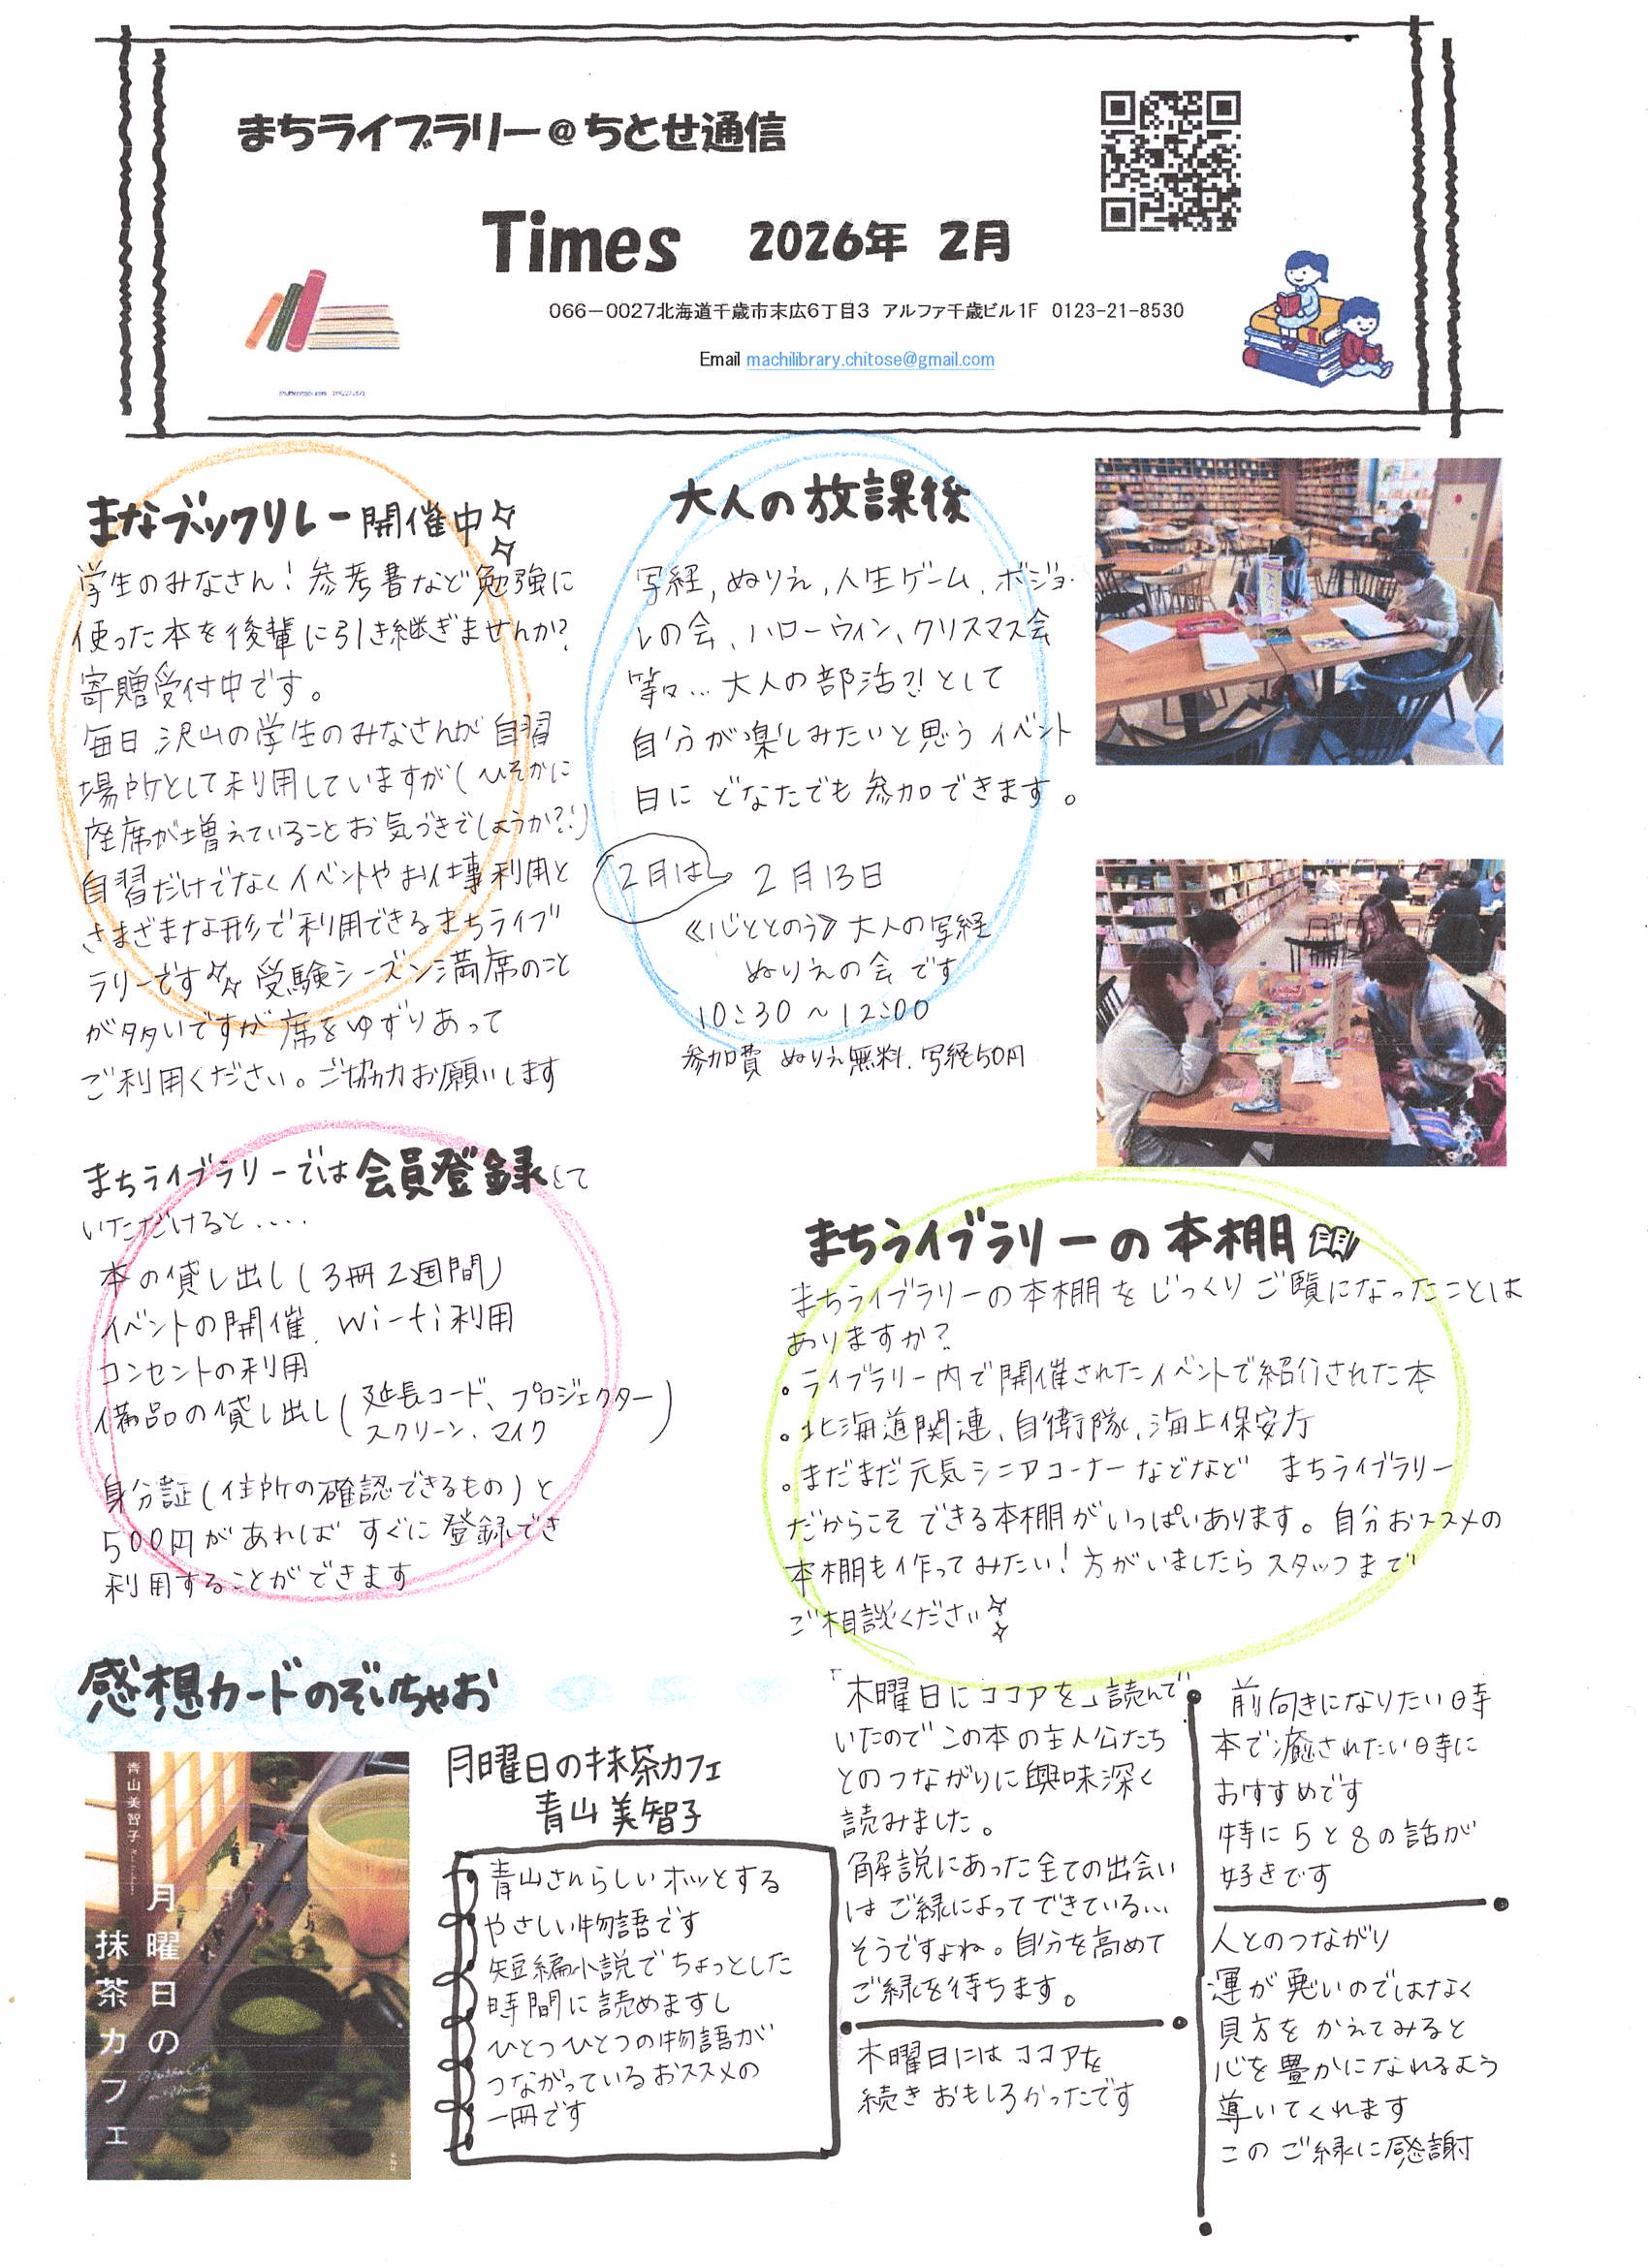 まちライブラリー@ちとせ通信
Times 2026年 2月
066-0027北海道千歳市末広6丁目3 アルファ千歳ビル1F 0123-21-8530
Email machilibrary.chitose@gmail.com
まなブックリレー開催中
学生のみなさん!参考書など勉強に
使った本を後輩に引き継ぎませんか?
寄贈受付中です。
毎日沢山の学生のみなさんが自習
場所として利用していますが(ひそかに
座席が増えていることお気づきでしょうか?!)
自習だけでなくイベントやお仕事利用と
さまざまな形で利用できるまちライブ
ラリーです 受験シーズン満席のこと
が多いですが席をゆずりあって
ご利用ください。ご協力お願いします
大人の放課後
写経,ぬりえ,人生ゲーム、ボジョ・
レの会、ハローウィン、クリスマス会
等々…大人の部活?!として
自分が楽しみたいと思うイベント
日にどなたでも参加できます。
2月は 2月13日
《心ととのう》大人の写経
ぬりえの会です
10:30~12:00
参加費 ぬりえ無料、写経50円
まちライブラリーでは会員登録して
いただけると....
本の貸し出し(3冊2週間)
イベントの開催、Wi-fi利用
コンセントの利用
備品の貸し出し(延長コード、プロジェクター
スクリーン、マイク)
身分証(住所の確認できるもの)と
500円があればすぐに登録でき
利用することができます
まちライブラリーの本棚
まちライブラリーの本棚をじっくりご覧になったことは
ありますか?
。ライブラリー内で開催されたイベントで紹介された本
。北海道関連、自衛隊、海上保安庁
。まだまだ元気シニアコーナーなどなど まちライブラリー
だからこそできる本棚がいっぱいあります。自分おススメの
本棚も作ってみたい!方がいましたらスタッフまで
ご相談ください
感想カードのぞいちゃお
青山美智子
月曜日の
抹茶カフェ
月曜日の抹茶カフェ
青山美智子
青山さんらしいホッとする
やさしい物語です
短編小説でちょっとした
時間に読めますし
ひとつひとつの物語が
つながっているおススメの
一冊です
「木曜日にココアを」読んで
いたのでこの本の主人公たち
とのつながりに興味深く
読みました。
解説にあった全ての出会い
はご縁によってできている…
そうですよね。自分を高めて
ご縁を待ちます。
木曜日にはココアを
続きおもしろかったです
前向きになりたい時
本で癒されたい時に
おすすめです
特に5と8の話が
好きです
人とのつながり
運が悪いのではなく
見方をかえてみると
心を豊かになれるよう
導いてくれます
このご縁に感謝